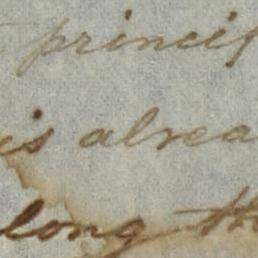 princip
is alrea
long th